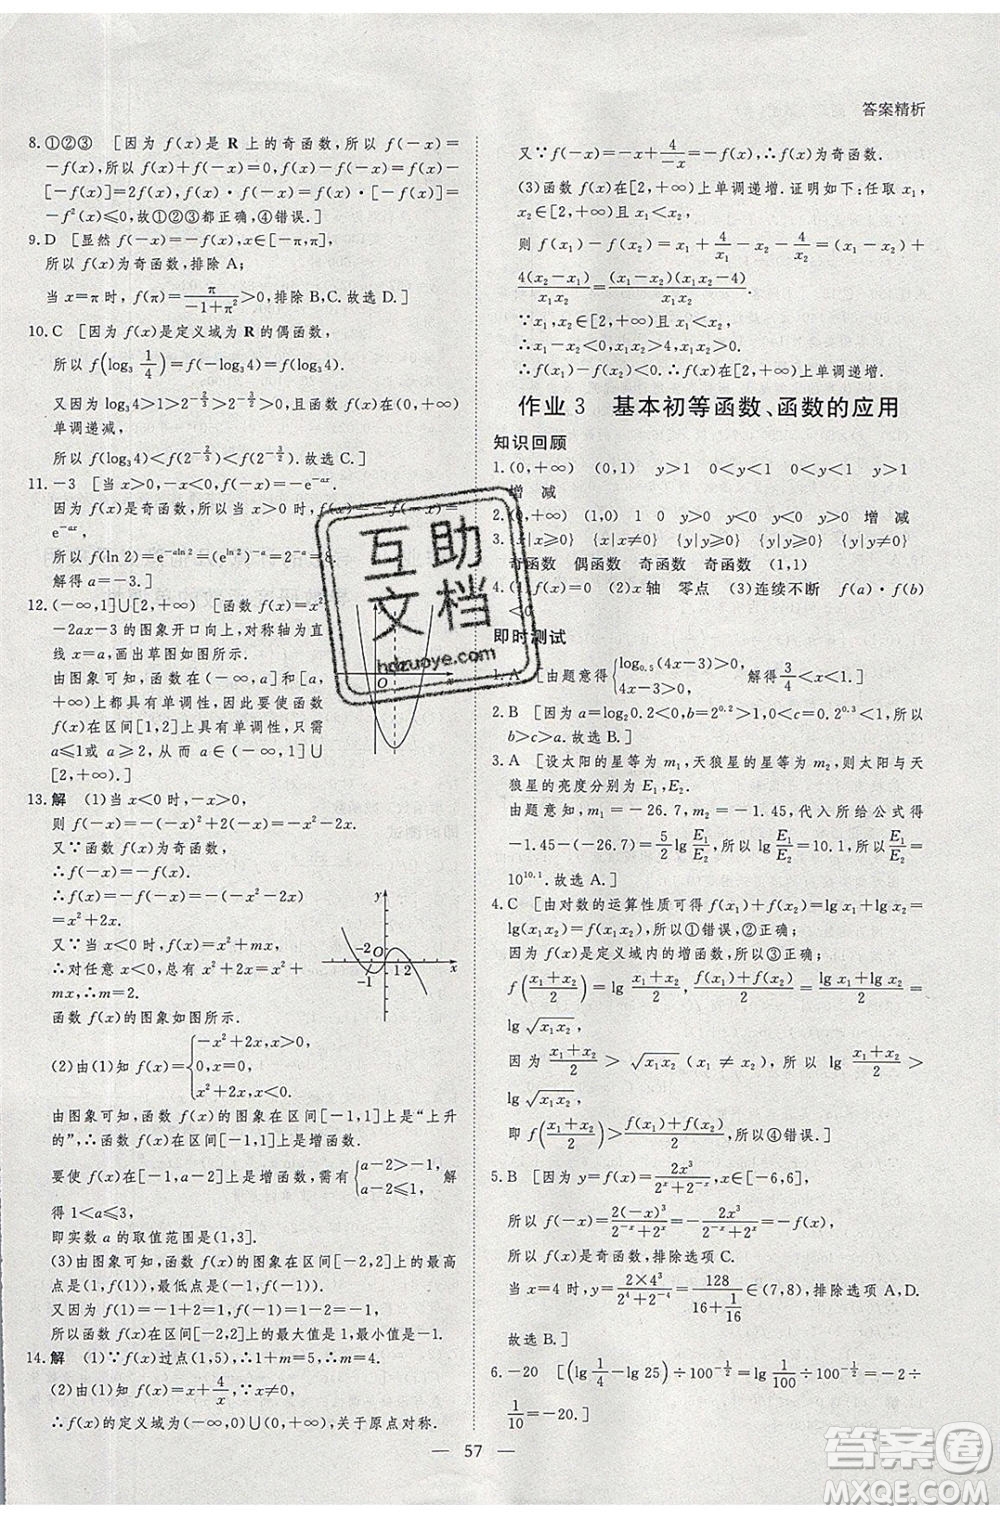 答案精析
8.①②③ [因为 f(x)是 R 上的奇函数,所以 f(-x)=
-f(x),所以 f(x)+f(-x)=0,f(x)-f(-x)=f(x)-
[-f(x)]=2f(x),f(x)·f(-x)=f(x)·[-f(x)]=
-f²(x)≤0,故①②③都正确,④错误.]
9.D [显然 f(-x)=-f(x),x∈[-π,π],
所以 f(x)为奇函数,排除 A;
当 x=π时,f(π)=π/(-1+π²)>0,排除 B,C.故选 D.]
10.C [因为 f(x)是定义域为 R 的偶函数,
所以 f(log₃ 1/4)=f(-log₃4)=f(log₃4).
又因为 log₃4>1>2^(-2/3)>2^(-3/2)>0,且函数 f(x)在(0,+∞)
单调递减,
所以 f(log₃4)<f(2^(-2/3))<f(2^(-3/2)).故选 C.]
11.-3 [当 x>0,-x<0,f(-x)=-e^(-ax).
因为 f(x)是奇函数,所以当 x>0
e^(-ax),
所以 f(ln 2)=e^(-aln 2)=(e^(ln 2))^(-a)=2^(-a)=8.
解得 a=-3.]
12.(-∞,1]∪[2,+∞) [函数 f(x)=x²
-2ax-3 的图象开口向上,对称轴为直
线 x=a,画出草图如图所示.
由图象可知,函数在(-∞,a]和[a,
+∞)上都具有单调性,因此要使函数
f(x)在区间[1,2]上具有单调性,只需
a≤1或 a≥2,从而 a∈(-∞,1]∪
[2,+∞).]
O x
13.解 (1)当 x<0时,-x>0,
则 f(-x)=-(-x)²+2(-x)=-x²-2x.
又∵函数 f(x)为奇函数,
∴f(-x)=-f(x).
∴f(x)=-f(-x)=-(-x²-2x)
=x²+2x.
又∵当 x<0时,f(x)=x²+mx,
∴对任意 x<0,总有 x²+2x=x²+
mx,∴m=2.
函数 f(x)的图象如图所示.
y
-2 O 1 2 x
-1
(2)由(1)知 f(x)={-x²+2x,x>0,
0,x=0,
x²+2x,x<0,
由图象可知,函数 f(x)的图象在区间[-1,1]上是“上升
的”,∴函数 f(x)在区间[-1,1]上是增函数.
要使 f(x)在[-1,a-2]上是增函数,需有{a-2>-1,
a-2≤1, 解
得 1<a≤3,
即实数 a 的取值范围是(1,3].
(3)由图象可知,函数 f(x)的图象在区间[-2,2]上的最高
点是(1,f(1)),最低点是(-1,f(-1)).
又因为 f(1)=-1+2=1,f(-1)=1-2=-1,
所以函数 f(x)在区间[-2,2]上的最大值是1,最小值是-1.
14.解 (1)∵f(x)过点(1,5),∴1+m=5⇒m=4.
(2)由(1)知 f(x)=x+4/x,∵x≠0,
∴f(x)的定义域为(-∞,0)∪(0,+∞),关于原点对称.
又∵f(-x)=-x+4/(-x)=-f(x),∴f(x)为奇函数.
(3)函数 f(x)在[2,+∞)上单调递增.证明如下:任取 x₁,
x₂∈[2,+∞)且 x₁<x₂,
则 f(x₁)-f(x₂)=x₁+4/x₁-x₂-4/x₂=(x₁-x₂)+
4(x₂-x₁)/x₁x₂=(x₁-x₂)(x₁x₂-4)/x₁x₂.
∵x₁,x₂∈[2,+∞)且 x₁<x₂,
∴x₁-x₂<0,x₁x₂>4,x₁x₂>0.
∴f(x₁)-f(x₂)<0,∴f(x)在[2,+∞)上单调递增.
作业 3 基本初等函数、函数的应用
知识回顾
1.(0,+∞) (0,1) y>1 0<y<1 0<y<1 y>1
增 减
2.(0,+∞) (1,0) 1 0 y>0 y<0 y<0 y>0 增 减
3.{x|x≥0} {x|x≠0} {y|y≥0} {y|y≠0} 奇函数
奇函数 偶函数 奇函数 奇函数 (1,1)
4.(1)f(x)=0 (2)x 轴 零点 (3)连续不断 f(a)·f(b)
<0
即时测试
1.A [由题意得{log₀.₅(4x-3)>0,
4x-3>0, 解得 3/4<x<1.]
2.B [因为 a=log₂0.2<0,b=2^0.2>1,0<c=0.2^0.3<1,所以
b>c>a.故选 B.]
3.A [设太阳的星等为 m₁,天狼星的星等为 m₂,太阳与天
狼星的亮度分别为 E₁,E₂,
由题意知,m₁=-26.7,m₂=-1.45,代入所给公式得
-1.45-(-26.7)=5/2 lg E₁/E₂,所以 lg E₁/E₂=10.1,所以 E₁/E₂=
10^10.1.故选 A.]
4.C [由对数的运算性质可得 f(x₁)+f(x₂)=lg x₁+lg x₂
=lg(x₁x₂)=f(x₁x₂),所以①错误,②正确;
因为 f(x)是定义域内的增函数,所以③正确;
f((x₁+x₂)/2)=lg (x₁+x₂)/2,(f(x₁)+f(x₂))/2=(lg x₁+lg x₂)/2=
lg √(x₁x₂),
因为 (x₁+x₂)/2 > √(x₁x₂) (x₁≠x₂),所以 lg (x₁+x₂)/2 >
lg √(x₁x₂),
即 f((x₁+x₂)/2)>(f(x₁)+f(x₂))/2,所以④错误.]
5.B [因为 y=f(x)=2x³/(2^x+2^(-x)),x∈[-6,6],
所以 f(-x)=2(-x)³/(2^(-x)+2^x)=-2x³/(2^(-x)+2^x)=-f(x),
所以 f(x)是奇函数,排除选项 C.
当 x=4时,y=2×4³/(2⁴+2⁻⁴)=128/(16+1/16)∈(7,8),排除选项 A,D.
故选 B.]
6.-20 [(lg 1/4-lg 25)÷100^(-1/2)=lg 1/100÷100^(-1/2)=-2÷
1/10=-20.]
57
互助
文档
hdzuoye.com
答案圈
MXQE.COM